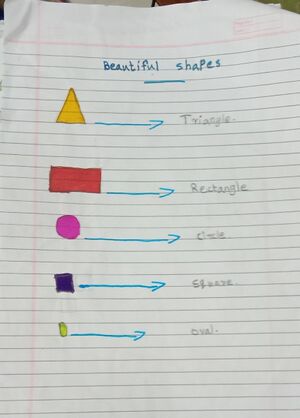 Beautiful shapes
Triangle.
Rectangle
circle
Square.
oval.